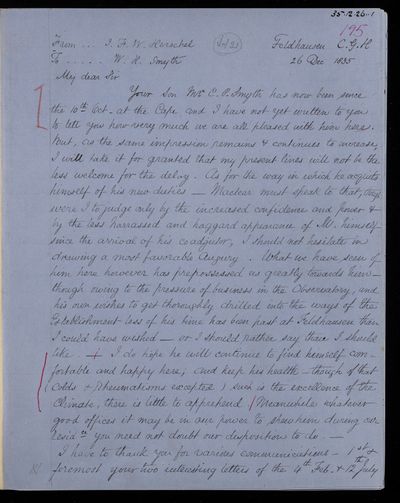 35-12-26-1
195
From .. J. F. W. Herschel Feldhausen C.G.H
To ...... W. H. Smyth 26 Dec 1835
My dear Sir
Your Son Mr. C. P. Smyth has now been since
the 10th Oct. at the Cape and I have not yet written to you
to tell you how very much we are all pleased with him here.
But, as the same impression remains & continues to increase,
I will take it for granted that my present lines will not be the
less welcome for the delay. As for the way in which he acquits
himself of his new duties — Maclear must speak to that, tho'
were I to judge only by the increased confidence and power &
by the less harrassed and haggard appearance of Mr. himself
since the arrival of his coadjutor, I should not hesitate in
drawing a most favorable Augury. What we have seen of
him here however has prepossessed us greatly towards him —
though owing to the pressure of business in the Observatory, and
his own wishes to get thoroughly drilled into the ways of the
Establishment less of his time has been past at Feldhausen than
I could have wished — or I should rather say than I should
like. + I do hope he will continue to find himself com-
fortable and happy here; and keep his health — though (that
Colds & Rheumatisms excepted) such is the excellence of the
Climate, there is little to apprehend / Meanwhile whatever
good offices it may be in our power to shew him during our
resid.ce you need not doubt our disposition to do. —
I have to thank you for various communications — 1st &
foremost your two interesting letters of the 4th Feb. & 12th July